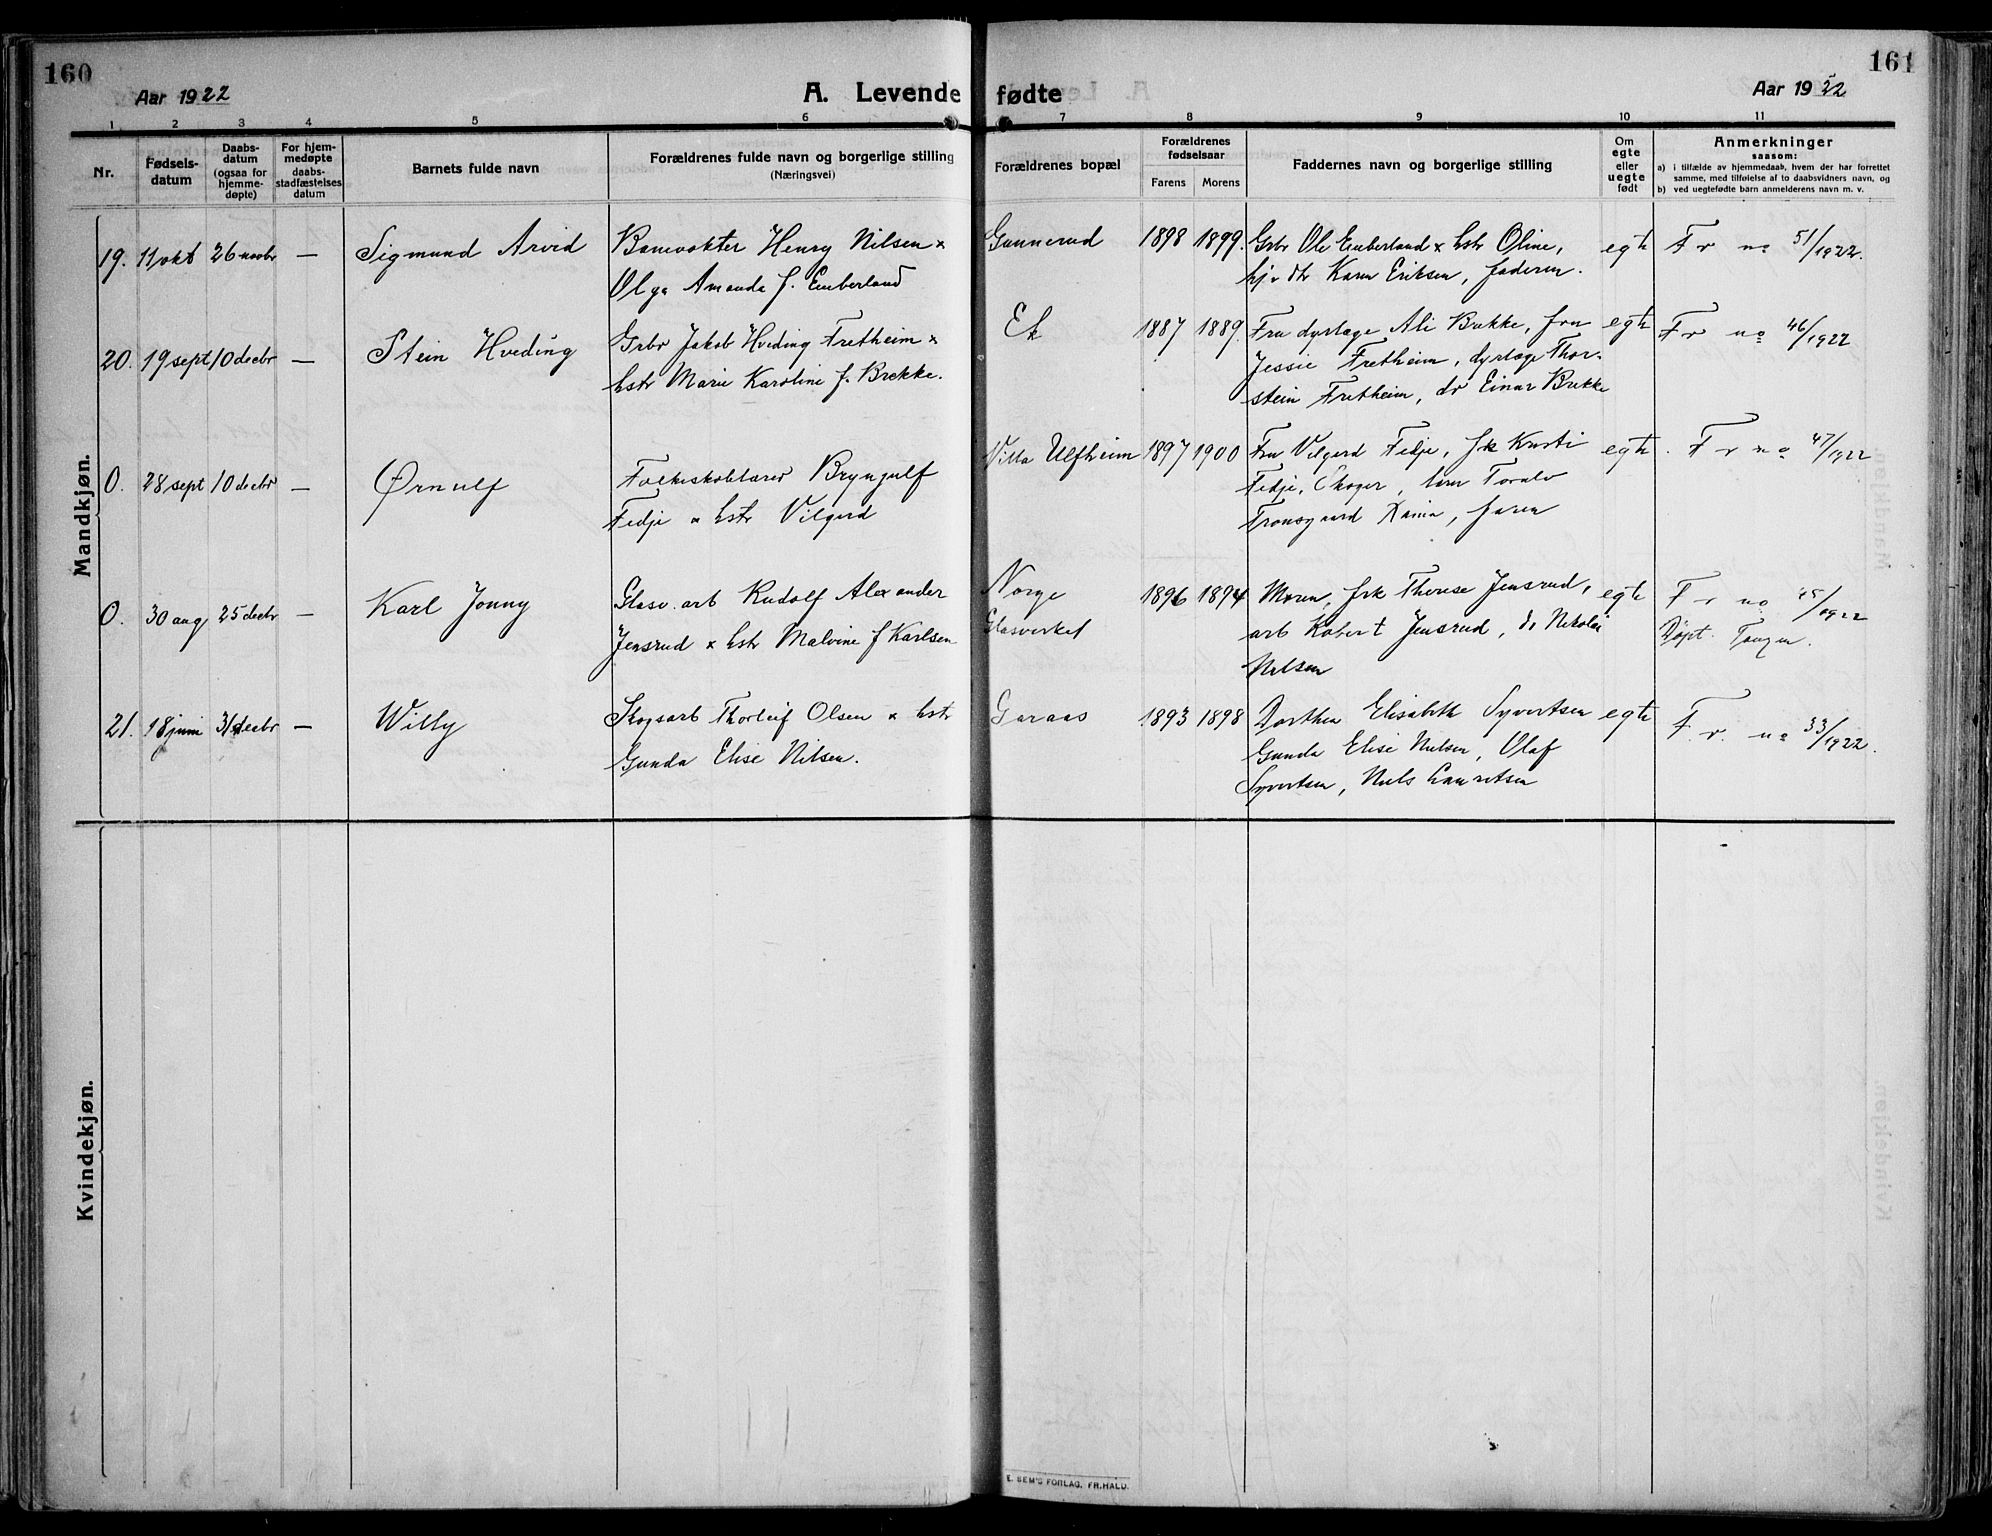 160
161
Aar 1922
A. Levende fødte
Aar 1922
1 2 3 4 5 6 7 8 9 10 11
Nr.
Fødsels-
datum
Daabs-
datum
(ogsaa for
hjemme-
døpte)
For hjem-
medøpte
daabs-
stadfæstelses
datum
Barnets fulde navn
Forældrenes fulde navn og borgerlige stilling
(Næringsvei)
Forældrenes bopæl
Forældrenes
fødselsaar
Farens Morens
Faddernes navn og borgerlige stilling
Om
egte
eller
uegte
født
Anmerkninger
saasom:
a) i tilfælde av hjemmedaab, hvem der har forrettet
samme, med tilføielse af to daabsvidners navn, og
b) ved uegtefødte barn anmelderens navn m. v.
Mandkjøn.
19. 11 okt 26 novbr — Sigmund Arvid
Banevokter Henry Nilsen x
Olga Amanda f. Emberland
Gunnerud 1898 1899.
Grbr Ole Emberland x hstr Oline,
hjv dtr Karen Eriksen, faderen.
egte F r no 51/1922.
20. 19 sept 10 decbr — Stein Hveding
Grbr Jakob Hveding Fretheim x
hstr Marie Karoline f. Brekke.
Ek 1887 1889.
Fru dyrlæge Ali Brekke, fru
Jessie Fretheim, dyrlæge Thor-
stein Fretheim, dr Einar Brekke
egte F r no 46/1922
0. 28 sept 10 decbr — Ørnulf
Folkeskolelærer Bryngulf
Fedje x hstr Vilgerd
Villa Ulfheim 1897 1900
Fru Vilgerd Fedje, frk Kristi
Fedje, Skoger, Toralv
Tronsgaard , faren
egte. F r no 47/1922
0. 30 aug 25 decbr — Karl Jonny
Glasv. arb Rudolf Alexander
Jensrud x hstr Malvine f Karlsen
Norge
Glasverket
1896 1894
Moren, frk Therese Jensrud,
arb Robert Jensrud, do Nikolai
Nilsen
egte F r no 45/1922
Døpt. Tangen.
21. 18 juni 31 decbr — Willy
Skogsarb Thorleif Olsen x hstr
Gunda Elise Nilsen.
Garaas 1893 1898
Dorthea Elisabeth Syvertsen
Gunda Elise Nielsen, Olaf
Syvertsen, Niels Lauretsen
egte F. r. no 33/1922.
Kvindekjøn.
E. SEM'S FORLAG, FR.HALD.